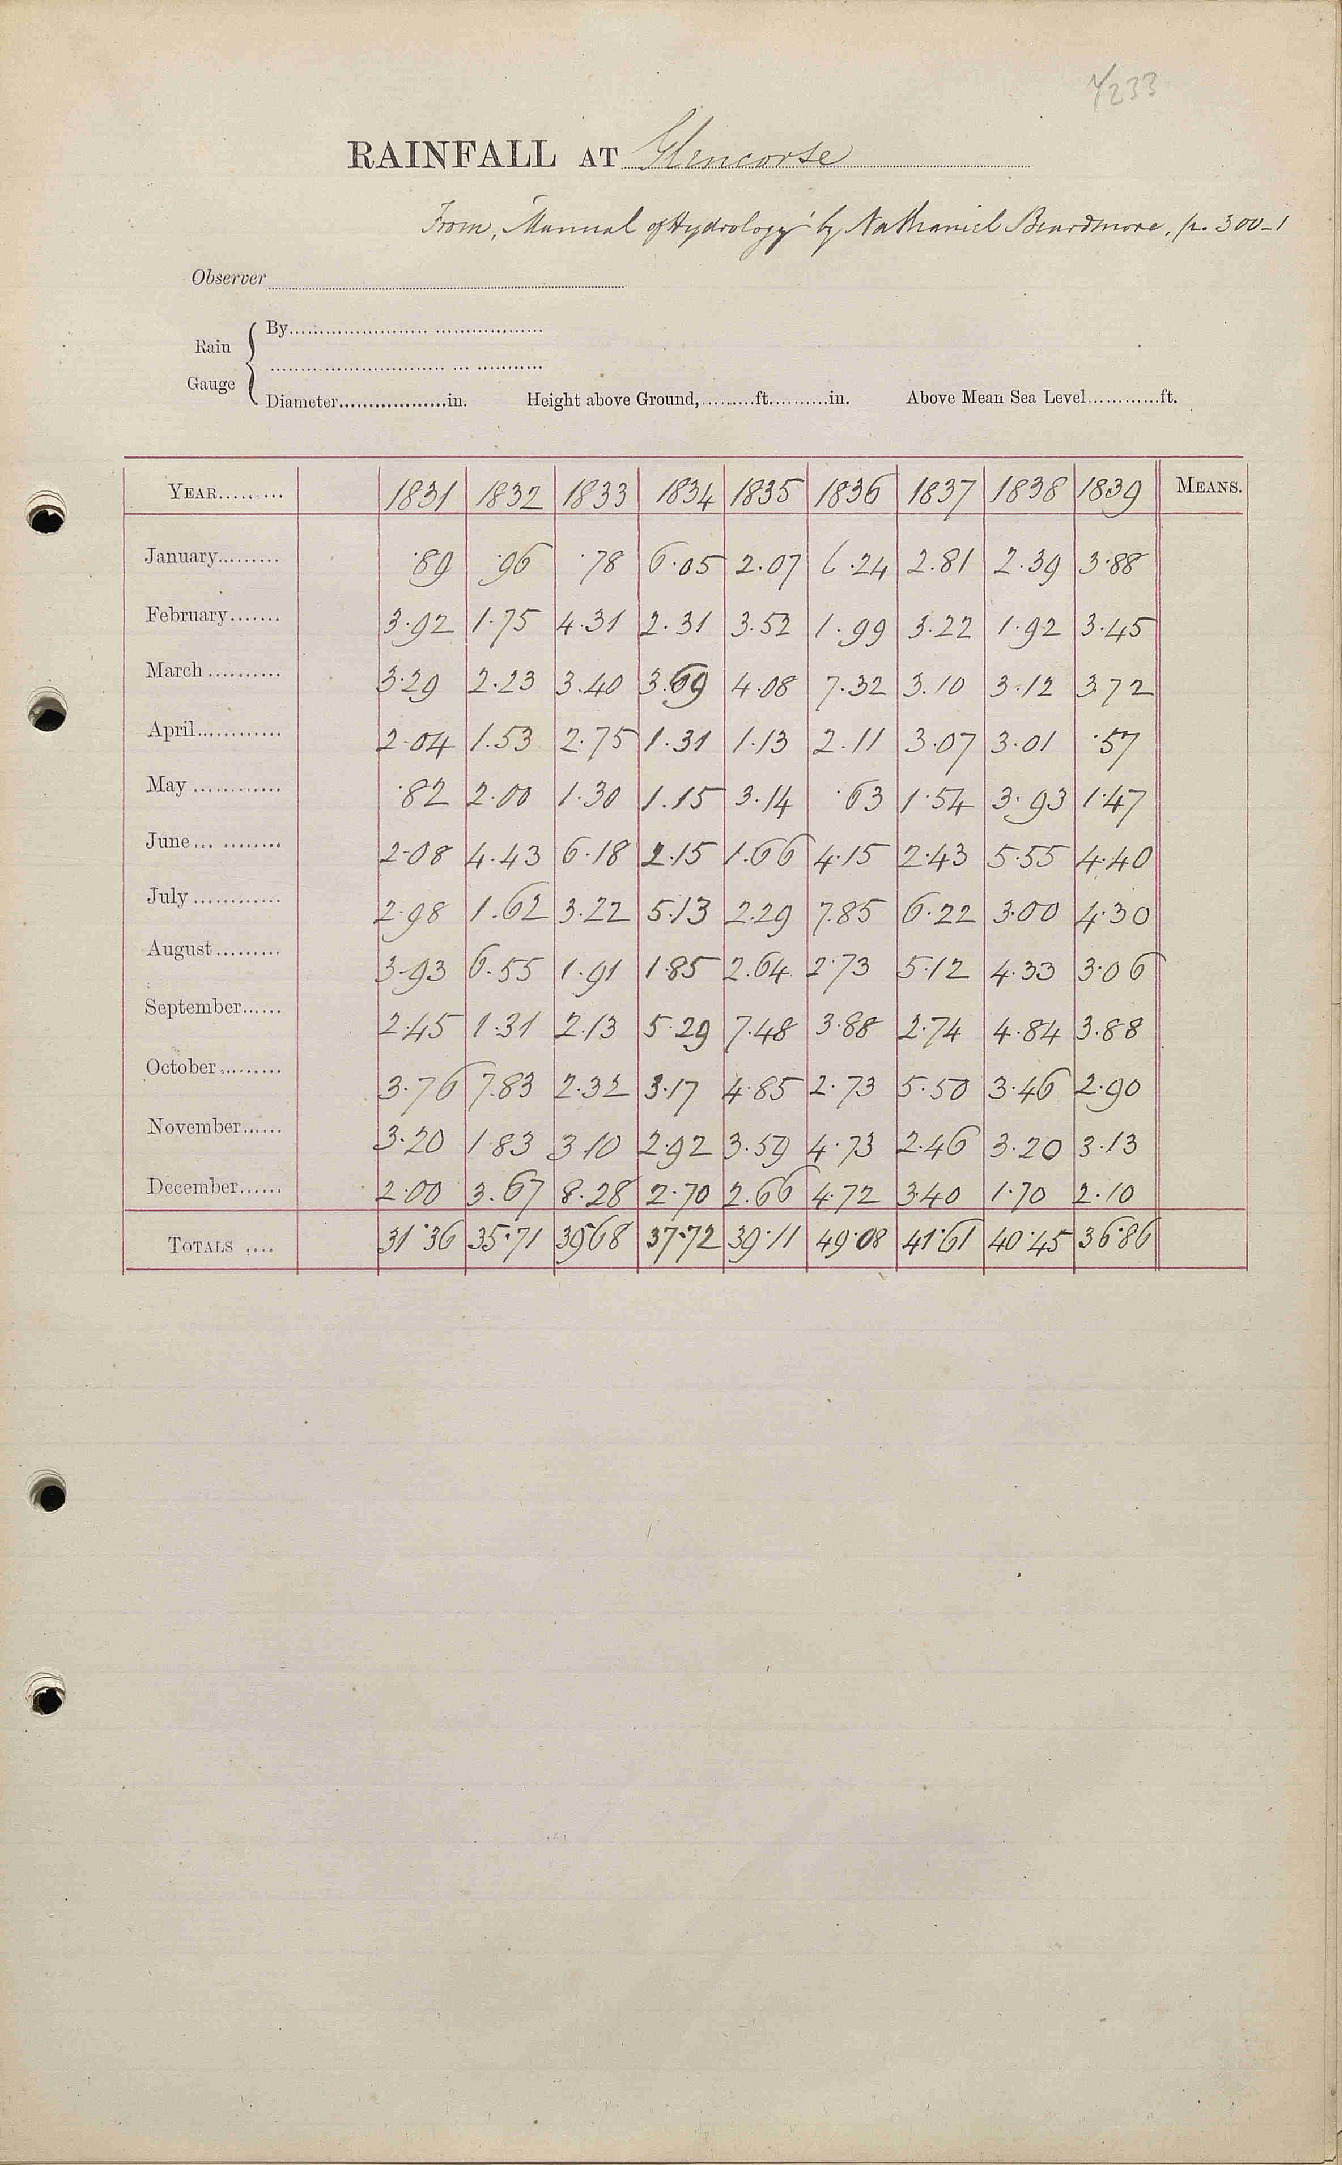 7/233
RAINFALL AT Glencorse
From, 'Manual of Hydrology' by Nathaniel Beardmore, p. 300-1
Observer
Rain Gauge { By
Diameter in. Height above Ground, ft. in. Above Mean Sea Level ft.
YEAR 1831 1832 1833 1834 1835 1836 1837 1838 1839 MEANS.
January ·89 ·96 ·78 6·05 2·07 6·24 2·81 2·39 3·88
February 3·92 1·75 4·31 2·31 3·52 1·99 3·22 1·92 3·45
March 3·29 2·23 3·40 3·69 4·08 7·32 3·10 3·12 3 72
April 2·04 1·53 2·75 1·31 1·13 2·11 3·07 3·01 ·57
May ·82 2·00 1·30 1·15 3·14 ·63 1·54 3·93 1·47
June 2·08 4·43 6·18 2·15 1·66 4·15 2·43 5·55 4·40
July 2·98 1·62 3·22 5·13 2·29 7·85 6·22 3·00 4·30
August 3·93 6·55 1·91 1·85 2·64 2·73 5·12 4·33 3·06
September 2·45 1·31 2·13 5·29 7·48 3·88 2·74 4·84 3·88
October 3·76 7·83 2·32 3·17 4·85 2·73 5·50 3·46 2·90
November 3·20 1·83 3 10 2·92 3·59 4·73 2·46 3·20 3·13
December 2·00 3·67 8·28 2·70 2·66 4·72 3·40 1·70 2·10
TOTALS 31·36 35·71 3968 37·72 39·11 49·08 41·61 40·45 36·86